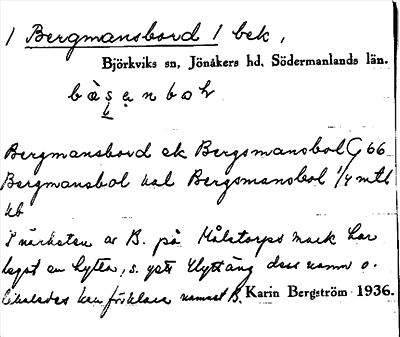 1 Bergmansbord 1 bek,
Björkviks sn, Jönåkers hd, Södermanlands län.
Bergmansbord ek Bergsmansbol G 66
Bergmansbol kal Bergsmansbol 1/4 mtl
kb
I närheten av B. på Hålstorps mark har
legat en hytta, s.
namn o.
kan förklara namnet B. Karin Bergström 1936.